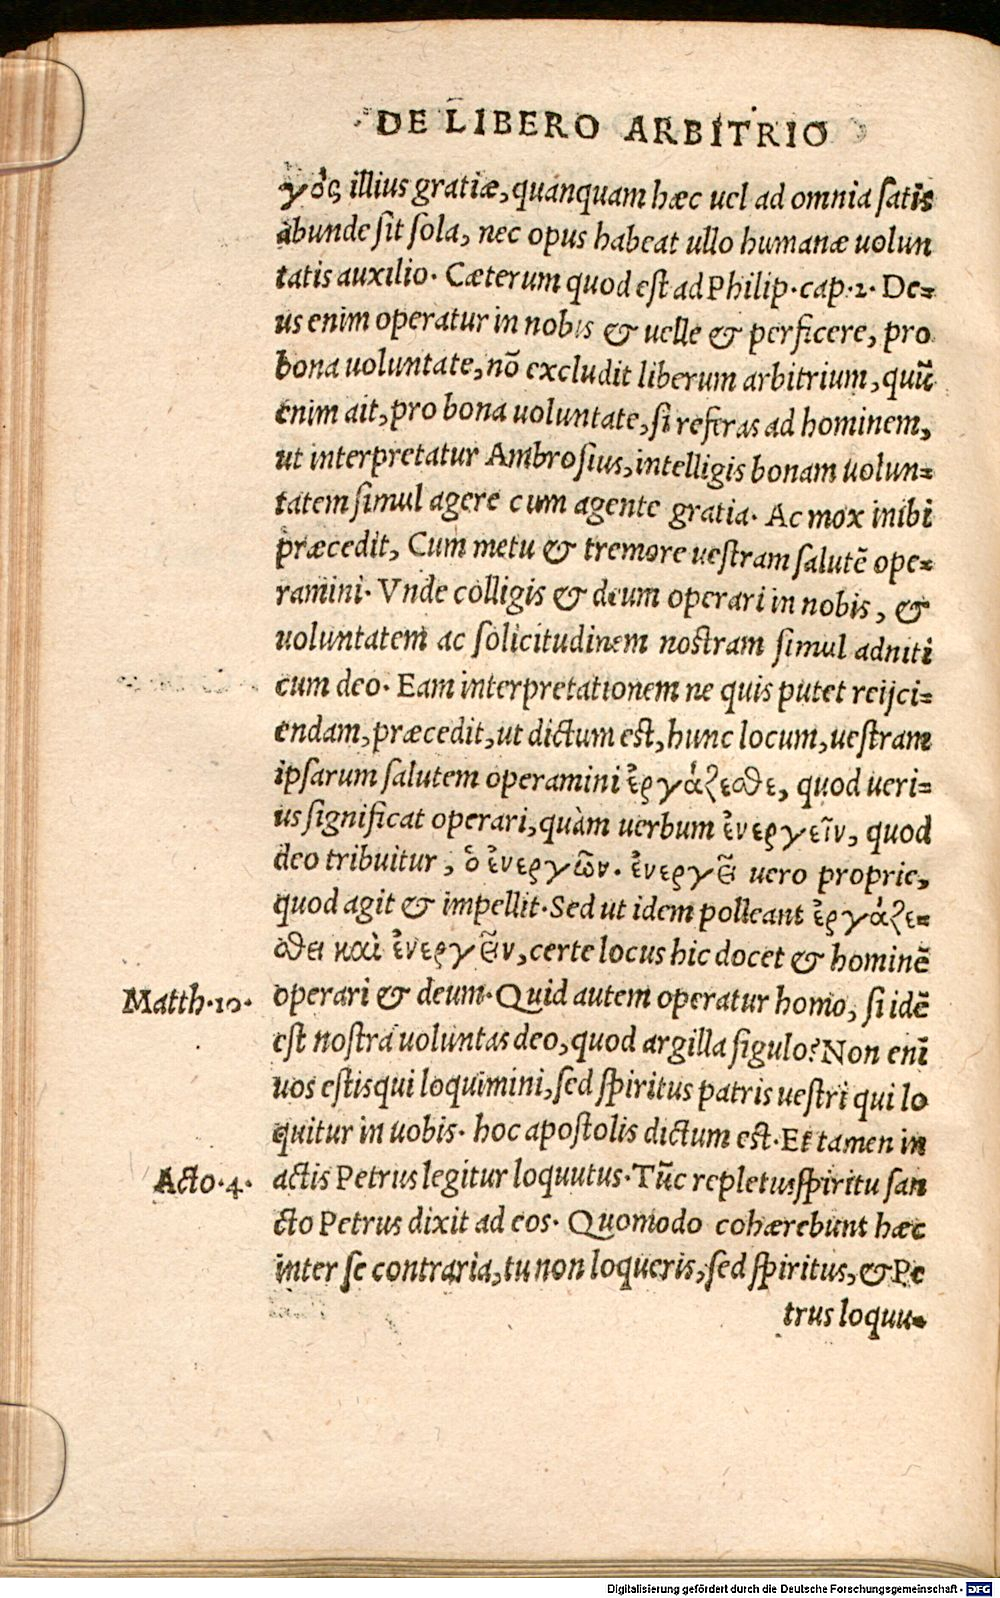 DE LIBERO ARBITRIO
γὸς illius gratiæ, quanquam hæc uel ad omnia satis
abunde sit sola, nec opus habeat ullo humanæ uolun
tatis auxilio. Cæterum quod est ad Philip. cap. 2. De=
us enim operatur in nobis & uelle & perficere, pro
bona uoluntate, nõ excludit liberum arbitrium, quũ
enim ait, pro bona uoluntate, si referas ad hominem,
ut interpretatur Ambrosius, intelligis bonam uolun=
tatem simul agere cum agente gratia. Ac mox inibi
præcedit, Cum metu & tremore uestram salutẽ ope=
ramini. Vnde colligis & deum operari in nobis, &
uoluntatem ac solicitudinem nostram simul adniti
cum deo. Eam interpretationem ne quis putet reijci=
endam, præcedit, ut dictum est, hunc locum, uestram
ipsarum salutem operamini ἐργάζεσθε, quod ueri=
us significat operari, quàm uerbum ἐνεργεῖν, quod
deo tribuitur, ὁ ἐνεργῶν. ἐνεργεῖ uero proprie,
quod agit & impellit. Sed ut idem polleant ἐργάζε=
σθαι καὶ ἐνεργεῖν, certe locus hic docet & hominẽ
Matth. 10.
operari & deum. Quid autem operatur homo, si idẽ
est nostra uoluntas deo, quod argilla figulo? Non enĩ
uos estis qui loquimini, sed spiritus patris uestri qui lo
quitur in uobis. hoc apostolis dictum est. Et tamen in
Acto. 4.
actis Petrus legitur loquutus. Tũc repletus spiritu san
cto Petrus dixit ad eos. Quomodo cohærebunt hæc
inter se contraria, tu non loqueris, sed spiritus, & Pe
trus loquu=
Digitalisierung gefördert durch die Deutsche Forschungsgemeinschaft - DFG